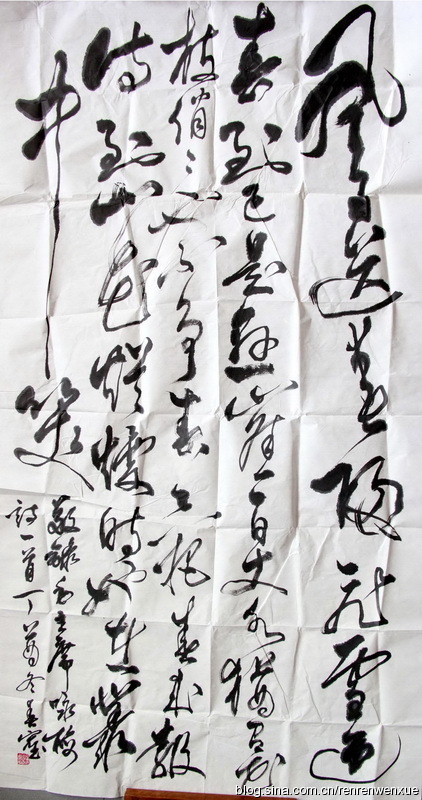 風雨送春歸飛雪迎
春到已是懸崖百丈冰猶有花
枝俏々也不争春只把春来報
待到山花爛熳時她在叢
中笑
敬録毛主席咏梅
詩一首丁酉冬
blog.sina.com.cn/renrenwenxue